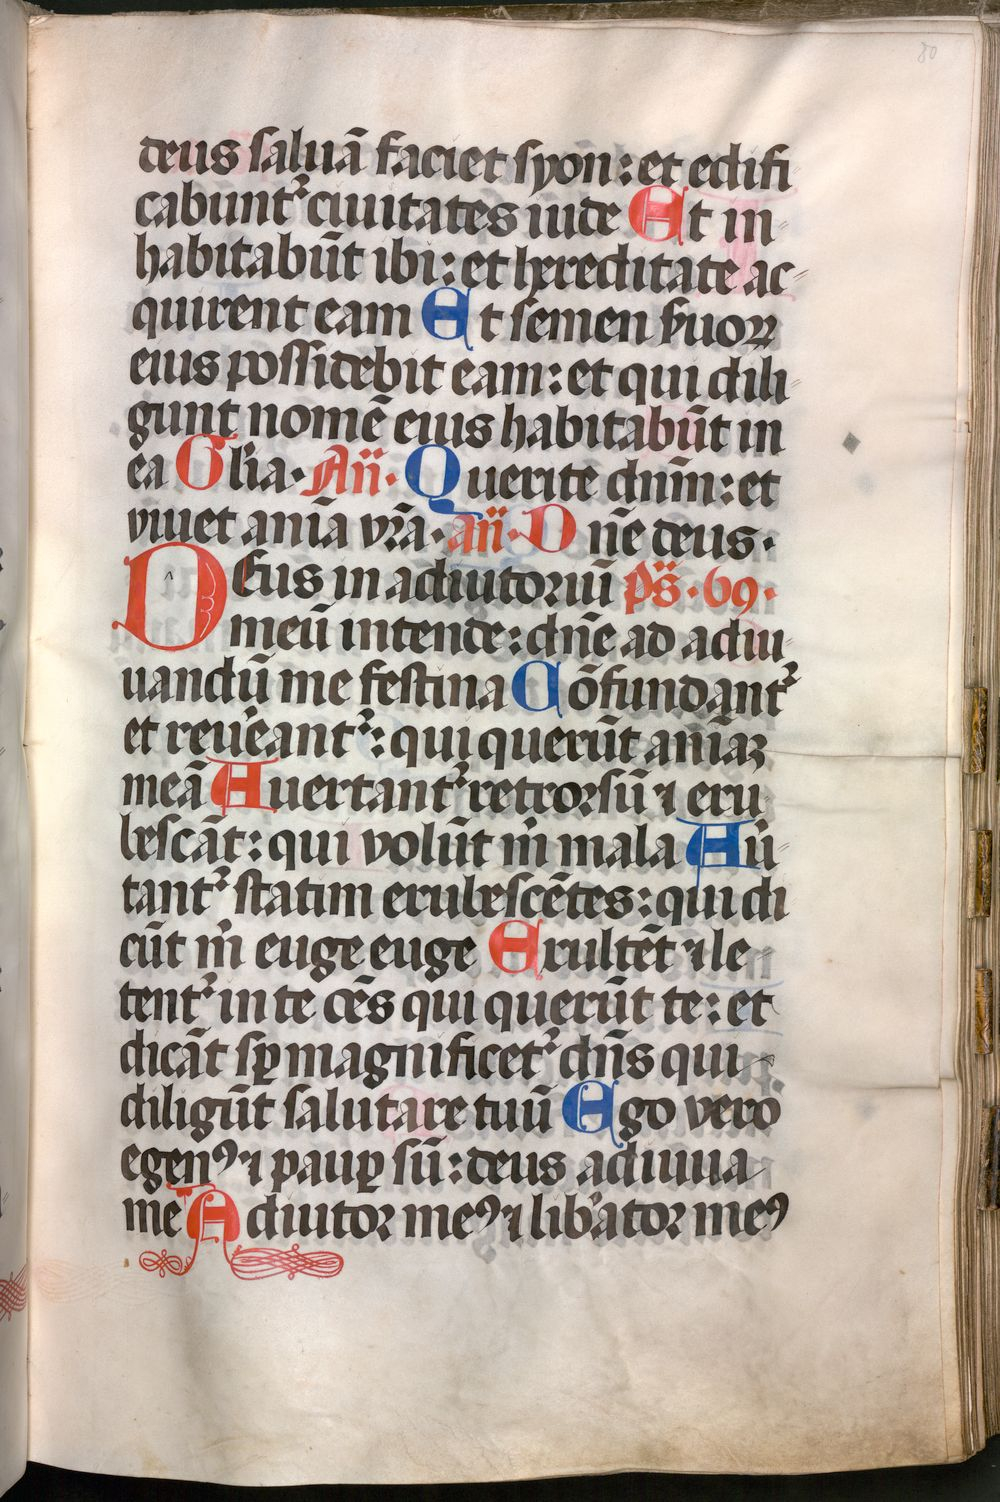 80
deus saluā faciet syon: et edifi
cabuntᷣ ciuitates iude Et in
habitabūt ibi: et hereditate ac
quirent eam Et semen ẜuoꝝ
eius possidebit eam: et qui dili
gunt nomē eius habitabūt in
ea Gl̄ia· An̄· Querite dn̄m: et
viuet an̄ia vr̄a· an̄· Dn̄e deus·
DEus in adiutoriū ps̄·69·
meū intende: dn̄e ad adiu
uandū me festina Cōfundantᷣ
et reu̓eantᷣ: qui querūt an̄iaꝫ
meā Auertantᷣ retrorsū ⁊ eru
bescāt: qui volūt m̄ mala Au̅
tantᷣ statim erubescētes: qui di
cūt m̄ euge euge Exultēt ⁊ le
tentᷣ in te oēs qui querūt te: et
dicāt sꝑ magnificetᷣ dn̄s qui
diligūt salutare tuū Ego vero
egenꝰ ⁊ pauꝑ sū: deus adiuua
me Adiutor meꝰ ⁊ lib̓ator meꝰ